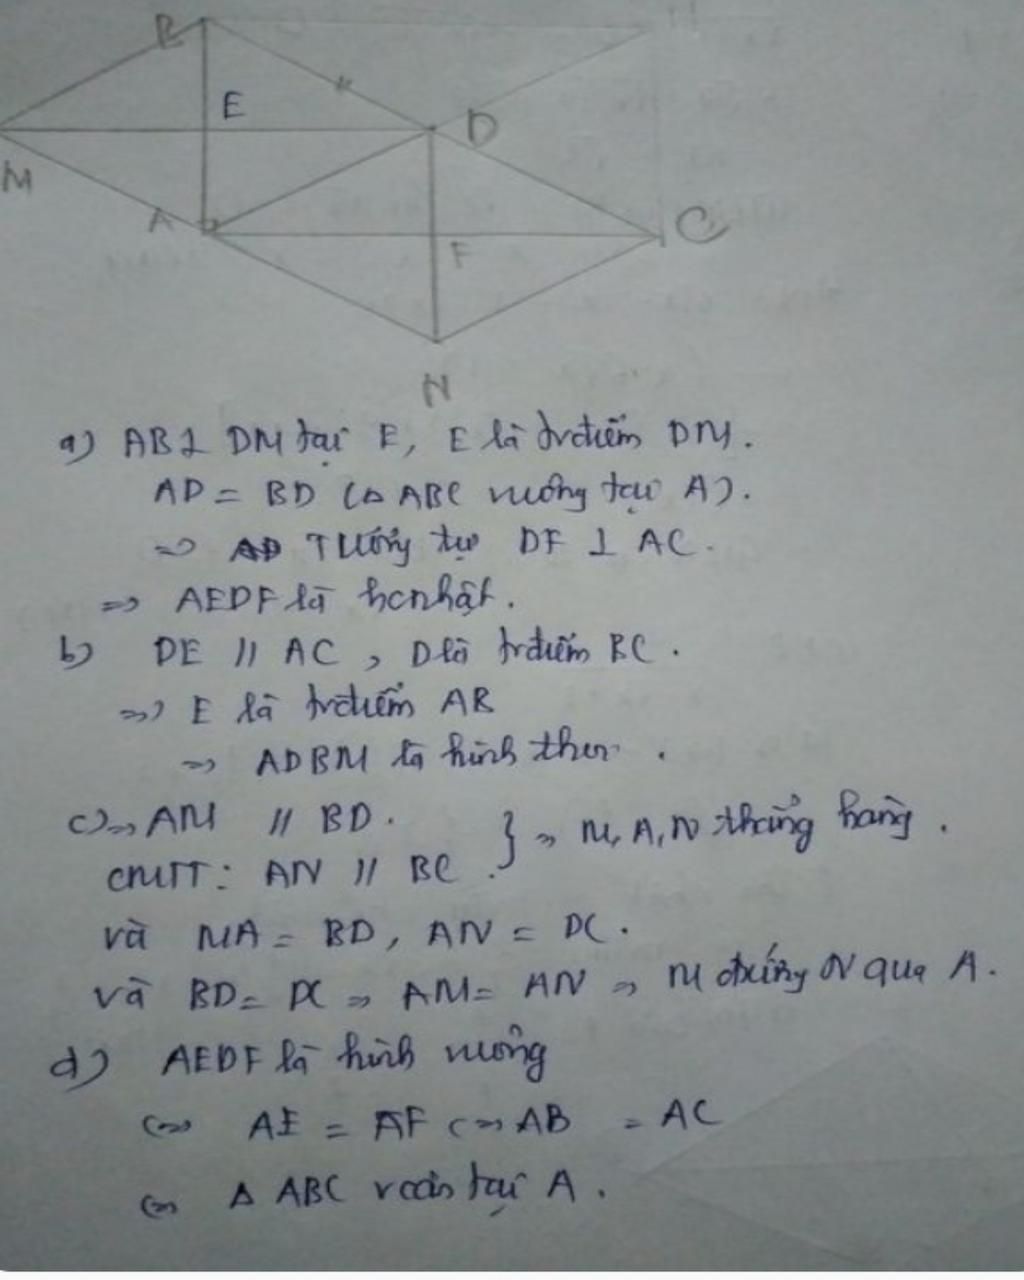 B
E
D
M
A
C
F
N
a) AB ⊥ DM tại E, E là trđiểm DM.
AD = BD (Δ ABC vuông tại A).
=> Tương tự DF ⊥ AC.
=> AEDF là hcnhật.
b) DE // AC, D là trđiểm BC.
=> E là trđiểm AB
=> ADBM là hình thoi.
c) => AM // BD.
} => M, A, N thẳng hàng.
CMTT: AN // BC.
và MA = BD, AN = DC.
và BD = DC => AM = AN => M đxứng N qua A.
d) AEDF là hình vuông
<=> AE = AF <=> AB = AC
<=> Δ ABC vcân tại A.